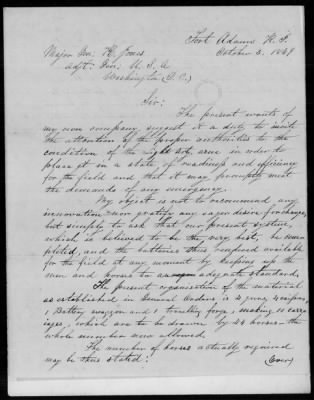 Fort Adams R. I.
October 5, 1849
Major Gen: R. Jones
Adjt: Gen: U. S. A
Washington (D. C.)
Sir:
The present wants of
my own company suggest it a duty to invite
the attention of the proper authorities to the
condition of the Light Arty arm in order to
place it in a state of readiness and efficiency
for the field and that it may promptly meet
the demands of any emergency.
My object is not to recommend any
innovation nor gratify any eager desire for change,
but simply to ask that our present system,
which is believed to be the very best, be com-
pleted, and the batteries thus rendered available
for the field at any moment by keeping up the
men and horses to an adequate standard.
The present organization of the material
as established in General Orders is 4 guns 4 caissons,
1 Battery waggon and 1 travelling forge, making 10 carri-
ages, which are to be drawn by 44 horses - the
whole number now allowed.
The number of horses actually required
may be thus stated:
(Over)